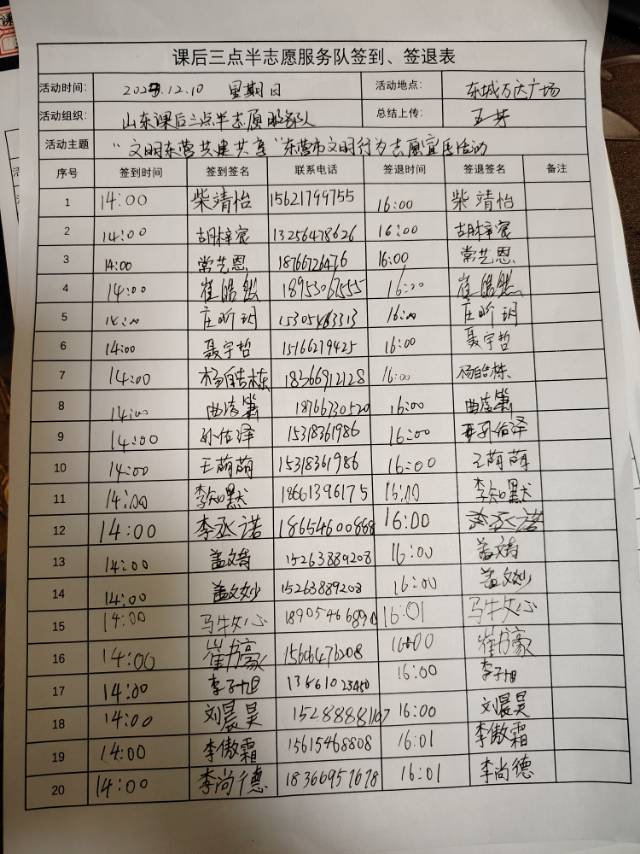 课后三点半志愿服务队签到、签退表
活动时间： 2023.12.10 星期日 活动地点： 东城万达广场
活动组织： 山东课后三点半志愿服务队 总结上传： 王芳
活动主题 “文明东营共建共享”东营市文明行为志愿宣传活动
序号 签到时间 签到签名 联系电话 签退时间 签退签名 备注
1 14:00 柴靖怡 15621799755 16:00 柴靖怡
2 14:00 胡梓宸 13256478626 16:00 胡梓宸
3 14:00 常艺恩 16:00 常艺恩
4 14:00 崔皓然 16:00 崔皓然
5 14:00 庄昕玥 16:00 庄昕玥
6 14:00 聂宇哲 15166219425 16:00 聂宇哲
7 14:00 杨皓栋 18366912128 16:00 杨皓栋
8 14:00 18766730520 16:00
9 14:00 孙佑泽 15318361986 16:00 孙佑泽
10 14:00 王萌萌 15318361986 16:00 王萌萌
11 14:00 李知默 18661396175 16:00 李知默
12 14:00 李丞诺 18654600868 16:00 李丞诺
13 14:00 盖文靖 15263889208 16:00 盖文靖
14 14:00 盖文妙 15263889208 16:00 盖文妙
15 14:00 16:01
16 14:00 崔书豪 16:00 崔书豪
17 14:00 李子旭 16:00 李子旭
18 14:00 刘晨昊 16:00 刘晨昊
19 14:00 李傲霜 15615468808 16:01 李傲霜
20 14:00 李尚德 18366957678 16:01 李尚德